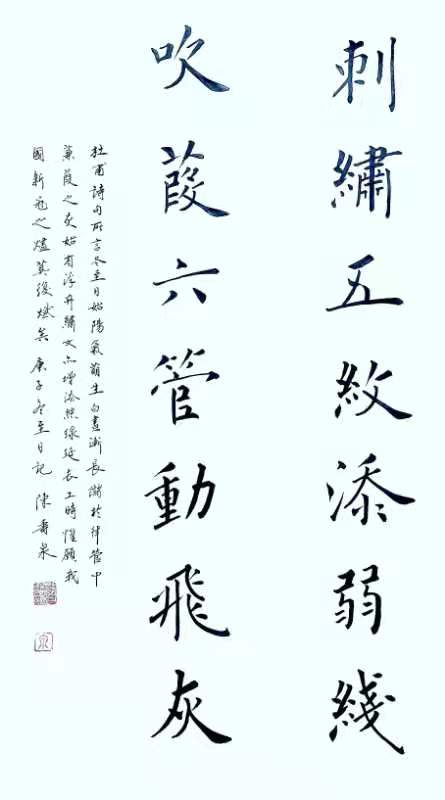 刺繡五紋添弱綫
吹葭六管動飛灰
杜甫詩句所言冬至日始陽氣萌生白晝漸長儲於律管中
蒹葭之灰始有浮升繡女亦增添絲線延長工時惟願我
國新冠之燼莫復燃矣 庚子冬至日記 陳 泉